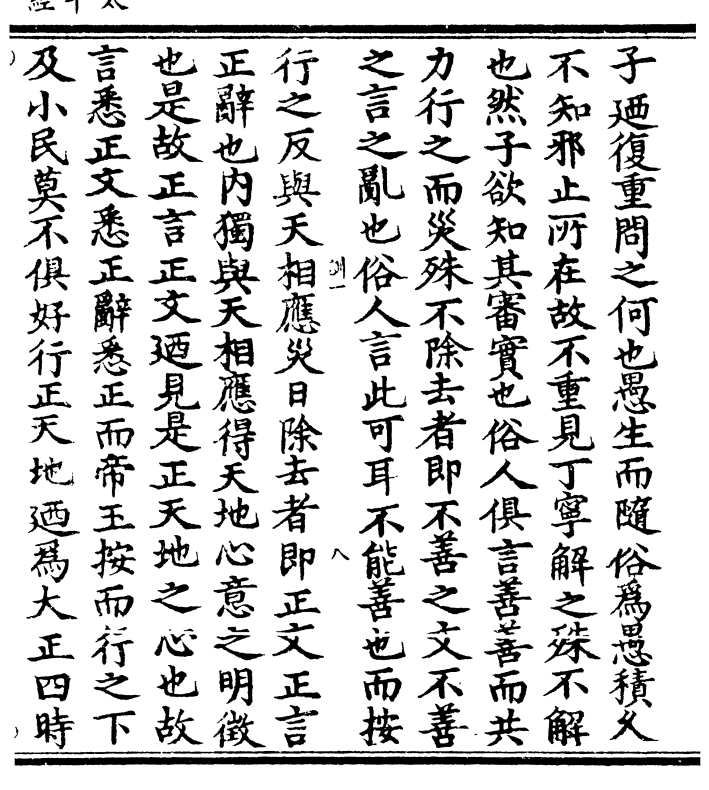 子廼復重問之何也愚生而隨俗爲愚積久
不知邪止所在故不重見丁寧解之殊不解
也然子欲知其審實也俗人俱言善善而共
力行之而災殊不除去者即不善之文不善
之言之亂也俗人言此可耳不能善也而按
行之反與天相應災日除去者即正文正言
正辭也内獨與天相應得天地心意之明徵
也是故正言正文廼見是正天地之心也故
言悉正文悉正辭悉正而帝王按而行之下
及小民莫不俱好行正天地廼爲大正四時
八